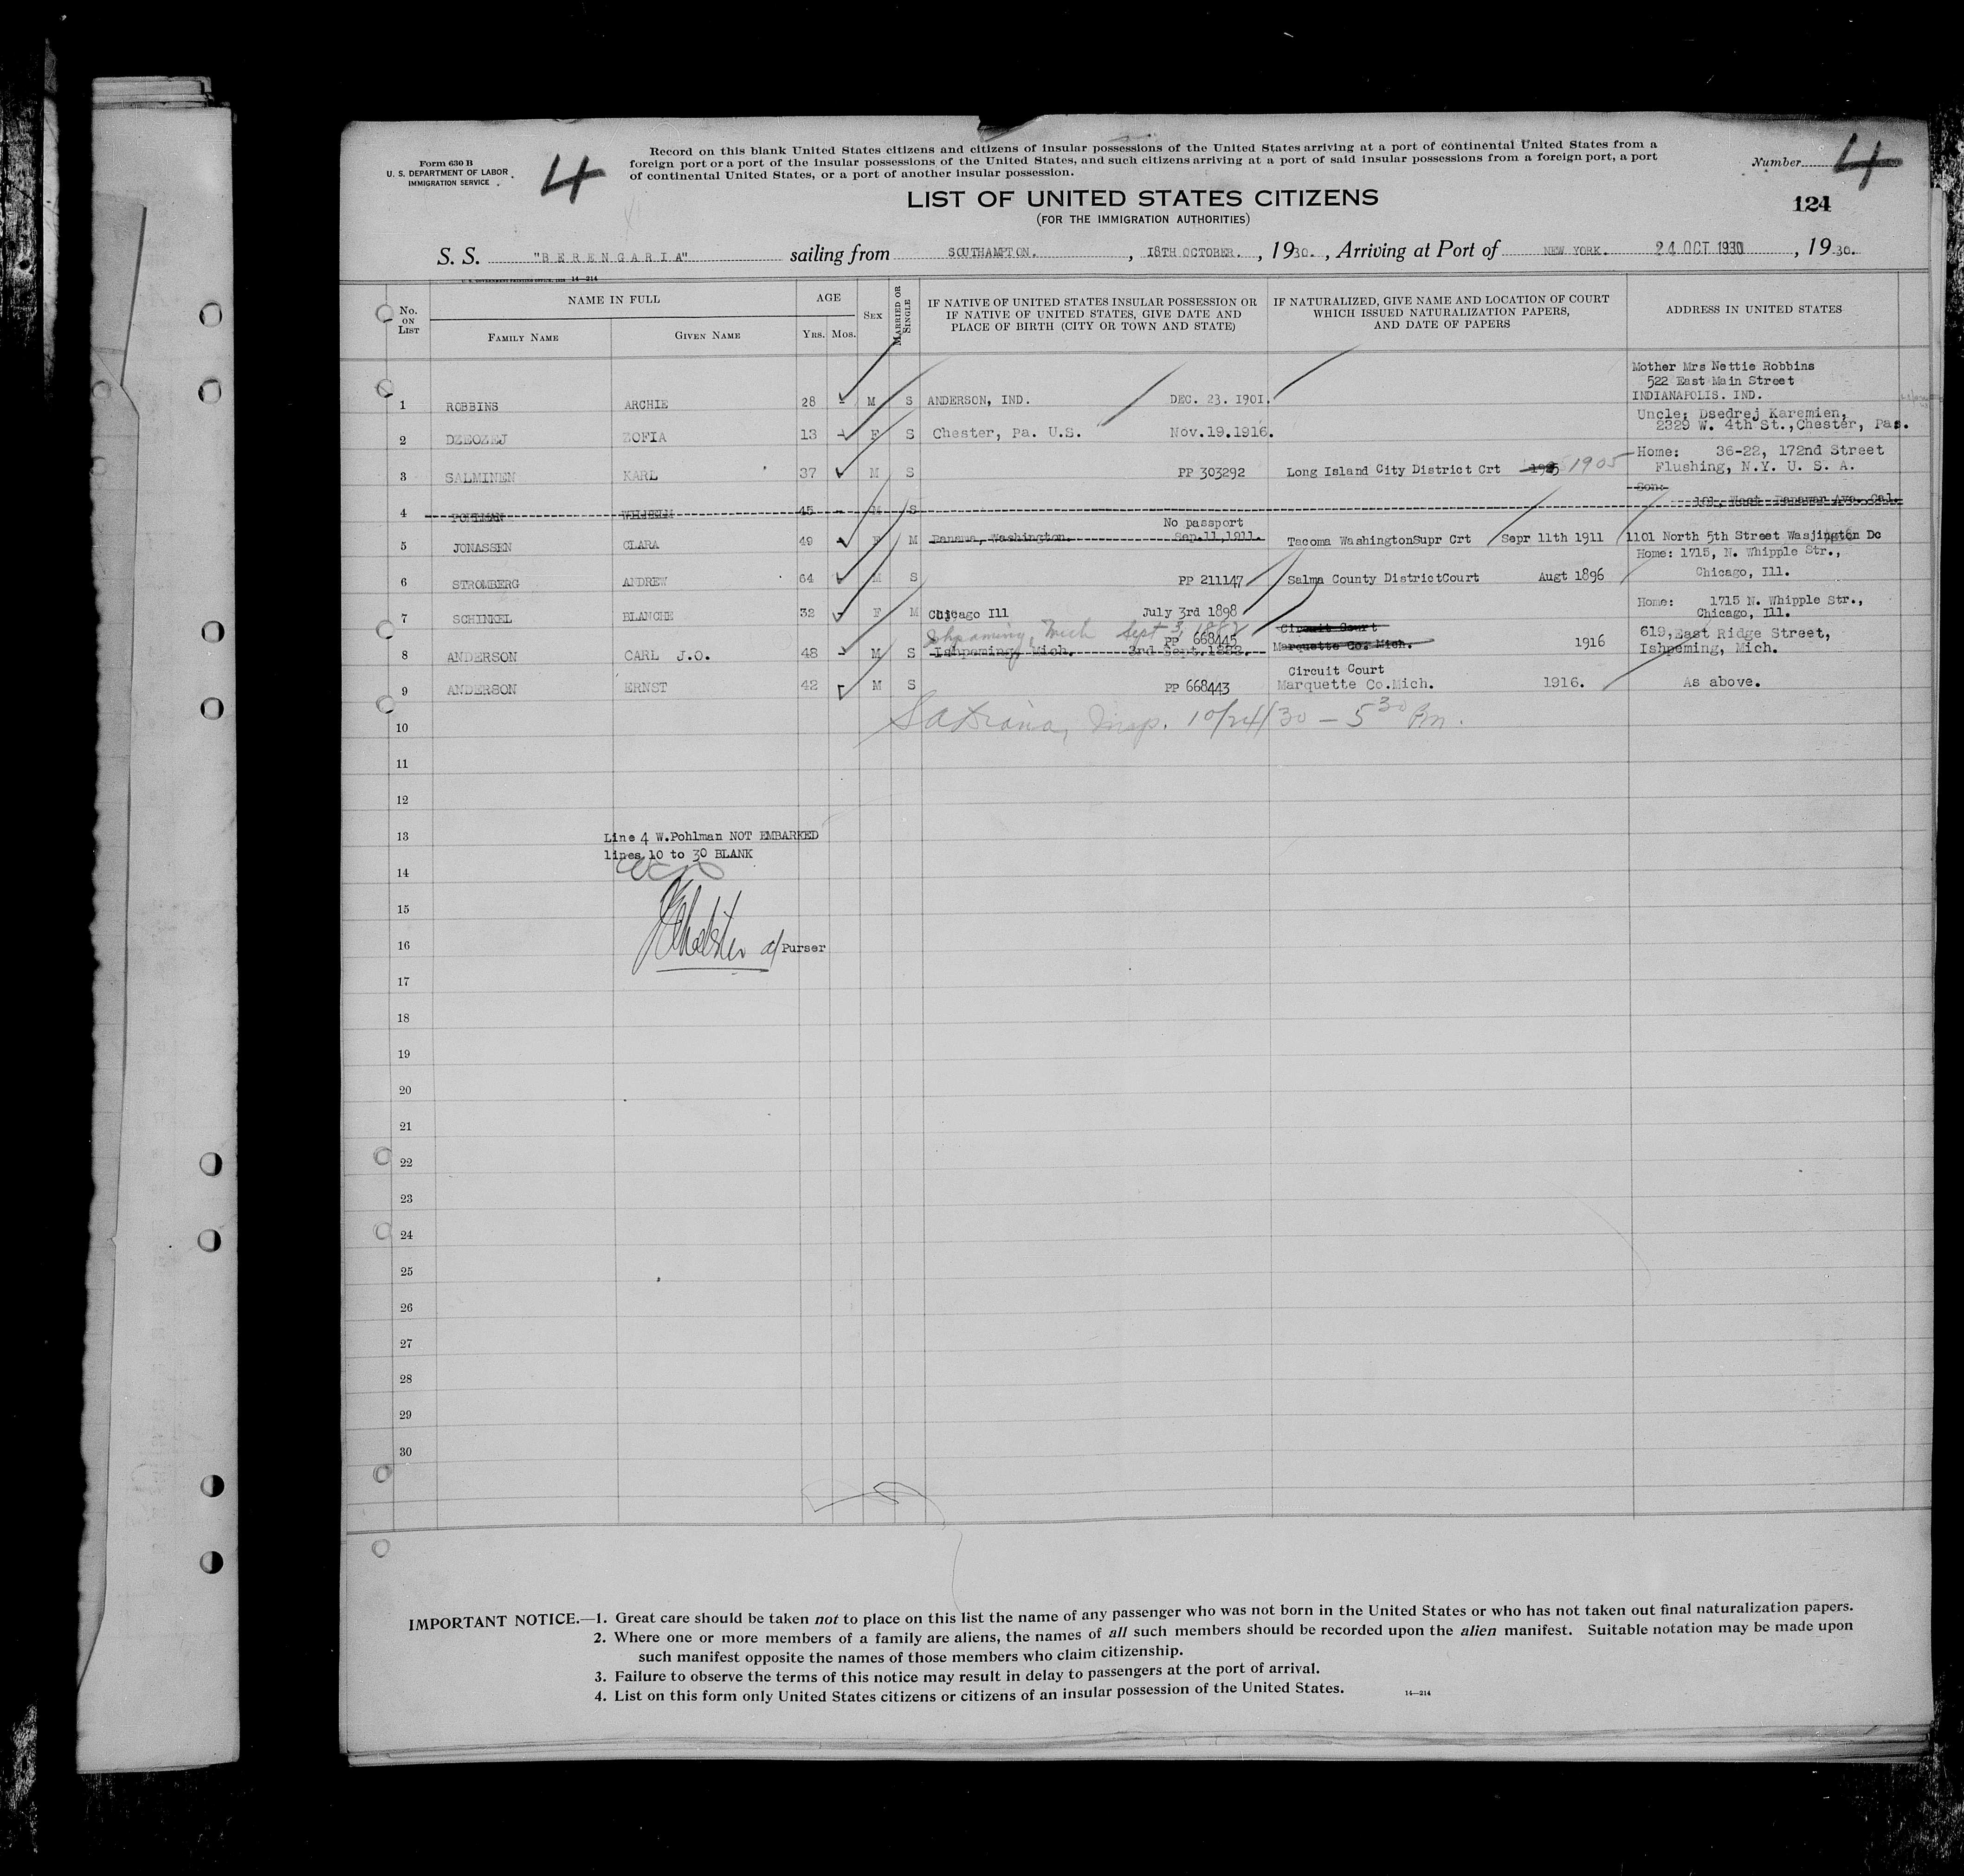 Form 630 B
U. S. DEPARTMENT OF LABOR
IMMIGRATION SERVICE
4
Record on this blank United States citizens and citizens of insular possessions of the United States arriving at a port of continental United States from a
foreign port or a port of the insular possessions of the United States, and such citizens arriving at a port of said insular possessions from a foreign port, a port
of continental United States, or a port of another insular possession.
Number 4
LIST OF UNITED STATES CITIZENS
(FOR THE IMMIGRATION AUTHORITIES)
124
S. S. "BERENGARIA" sailing from SOUTHAMPTON. , 18TH OCTOBER. , 1930. , Arriving at Port of NEW YORK. 24 OCT 1930 , 1930.
U. S. GOVERNMENT PRINTING OFFICE, 1928 14—214
No. ON LIST
NAME IN FULL
FAMILY NAME
GIVEN NAME
AGE
YRS. MOS.
SEX
MARRIED OR SINGLE
IF NATIVE OF UNITED STATES INSULAR POSSESSION OR
IF NATIVE OF UNITED STATES, GIVE DATE AND
PLACE OF BIRTH (CITY OR TOWN AND STATE)
IF NATURALIZED, GIVE NAME AND LOCATION OF COURT
WHICH ISSUED NATURALIZATION PAPERS,
AND DATE OF PAPERS
ADDRESS IN UNITED STATES
Mother Mrs Nettie Robbins
522 East Main Street
1 ROBBINS ARCHIE 28 - M S ANDERSON, IND. DEC. 23. 1901. INDIANAPOLIS. IND.
Uncle; Dsedrej Karemien,
2 DZEOZEJ ZOFIA 13 - F S Chester, Pa. U.S. Nov.19.1916. 2329 W. 4th St.,Chester, Pa.
Home: 36-22, 172nd Street
3 SALMINEN KARL 37 M S PP 303292 Long Island City District Crt 1905 Flushing, N.Y. U. S. A.
Son:
4 POHLMAN WILHELM 45 - M S 101, West Ave. Cal.
No passport
5 JONASSEN CLARA 49 F M Panama, Washington. Sep.11,1911. Tacoma WashingtonSupr Crt Sepr 11th 1911 1101 North 5th Street Wasjington Dc
Home: 1715, N. Whipple Str.,
6 STROMBERG ANDREW 64 M S PP 211147 Salma County DistrictCourt Augt 1896 Chicago, Ill.
Home: 1715 N. Whipple Str.,
7 SCHINKEL BLANCHE 32 - F M Chicago Ill July 3rd 1898 Chicago, Ill.
Ishpeming, Mich Sept 3, 1882
PP 668445 Circuit Court 619,East Ridge Street,
8 ANDERSON CARL J.O. 48 - M S Ishpeming, Mich. 3rd Sept.1882. Marquette Co. Mich. 1916 Ishpeming, Mich.
Circuit Court
9 ANDERSON ERNST 42 M S PP 668443 Marquette Co.Mich. 1916. As above.
Insp. 10/24/30 — 5 30 Pm.
10
11
12
13 Line 4 W.Pohlman NOT EMBARKED
lines 10 to 30 BLANK
14
15
16 a/ Purser
17
18
19
20
21
22
23
24
25
26
27
28
29
30
IMPORTANT NOTICE.—1. Great care should be taken not to place on this list the name of any passenger who was not born in the United States or who has not taken out final naturalization papers.
2. Where one or more members of a family are aliens, the names of all such members should be recorded upon the alien manifest. Suitable notation may be made upon
such manifest opposite the names of those members who claim citizenship.
3. Failure to observe the terms of this notice may result in delay to passengers at the port of arrival.
4. List on this form only United States citizens or citizens of an insular possession of the United States.
14—214